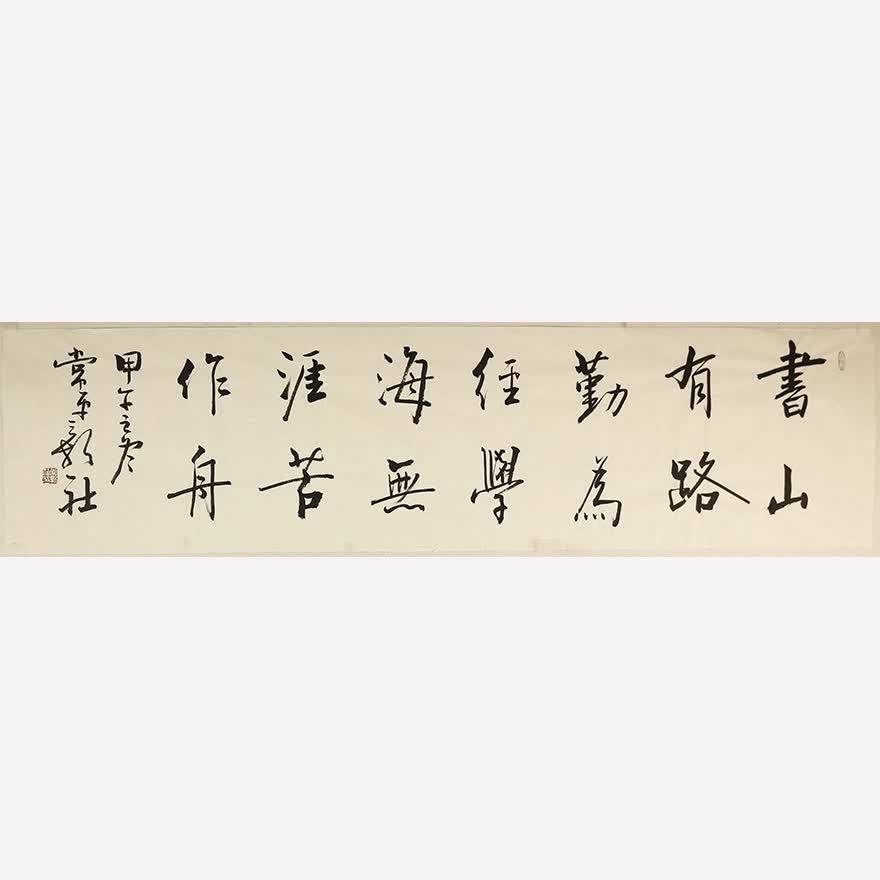 書山
有路
勤為
徑學
海無
涯苦
作舟
甲午之冬
常平